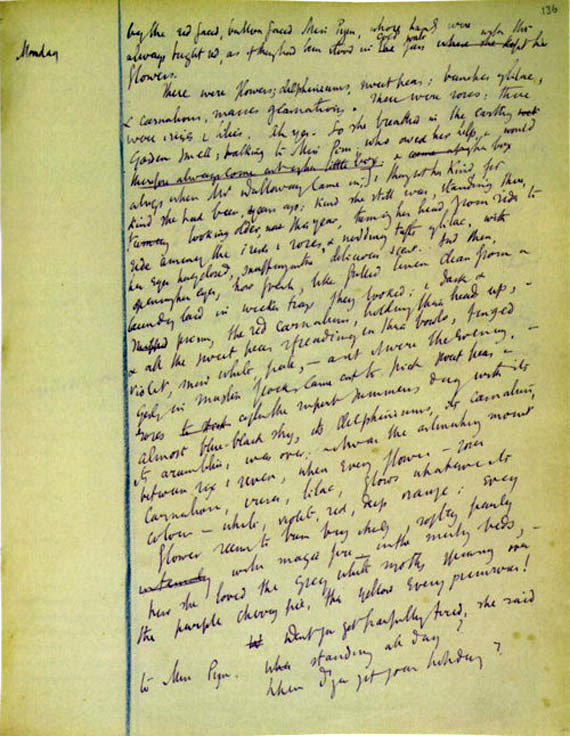 136
Monday
by the red faced, button faced Miss Pym, whose hands were
always bright red, as if they had been stood in cold water where she kept her
flowers.
There were flowers; delphiniums, sweet peas; bunches of lilac,
& carnations, masses of carnations. There were roses; there
were irises & lilies. Ah yes. So she breathed in the earthy
garden smell; talking to Miss Pym who owed her help, & would
therefore always come out of her little box
always when Mrs Dalloway came in; thought her kind, for
kind she had been, years ago; kind she still was, standing there,
looking older, this year, turning her head from side to
side among the irises & roses, & nodding tufts of lilac, with
her eyes half closed, snuffing in the delicious scent. And then,
opening her eyes, how fresh, like frilled linen clean from a
laundry laid in wicker trays they looked; & dark &
prim, the red carnations, holding their heads up, –
& all the sweet peas spreading in their bowls, tinged
violet, snow white, pale, – as if it were the evening, –
girls in muslin frocks came out to pick sweet peas &
roses after the superb summer's day with its
almost blue-black sky, its delphiniums, its carnations,
its arum lilies, was over; & it was the moment
between six & seven, when every flower – roses
carnations, irises, lilac, glows whatever its
colour – white, violet, red, deep orange; every
flower seems to burn by itself, softly, purely
in the misty beds, –
how she loved the grey white moths spinning over
the purple cherry pie, the yellow evening primroses!
Don't you get fearfully tired, she said
to Miss Pym. standing all day?
When d'you get your holiday?